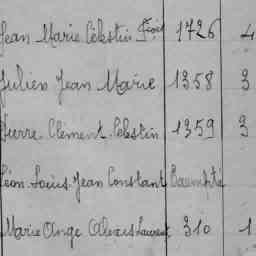 Jean Marie Célestin 1726 4
Julien Jean Marie 1358 3
Pierre Clément Célestin 1359 3
Léon Louis Jean Constant
Marie Ange Alexis Laurent 310 1